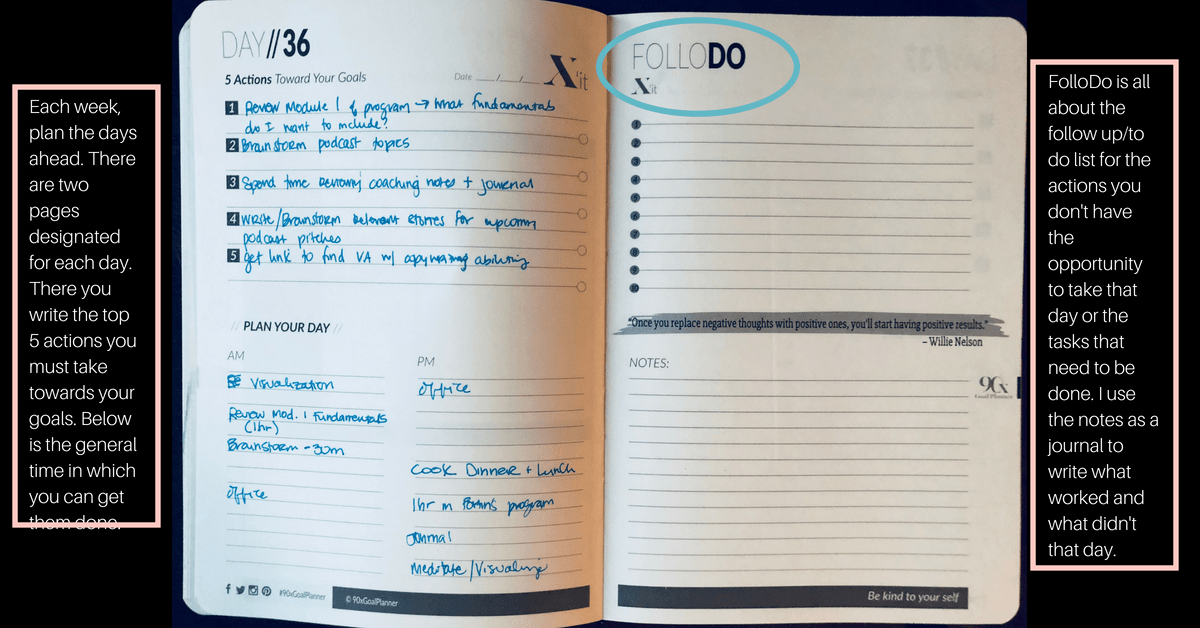 Each week,
plan the days
ahead. There
are two
pages
designated
for each day.
There you
write the top
5 actions you
must take
towards your
goals. Below
is the general
time in which
you can get
them done.
DAY//36
5 Actions Toward Your Goals
Date __/__/__
X'it
1 Review Module 1 of program → What fundamentals
do I want to include?
2 Brainstorm podcast topics
3 Spend time reviewing coaching notes + journal
4 Write/Brainstorm relevant stories for upcoming
podcast pitches
5 get link to find VA w/ copywriting
// PLAN YOUR DAY //
AM
Visualization
Review Mod. 1 Fundamentals
(1hr)
Brainstorm - 30m
office
PM
office
Cook Dinner + Lunch
1hr in program
Journal
Meditate/Visualize
#90xGoalPlanner
© 90xGoalPlanner
FOLLODO
X'it
1
2
3
4
5
6
7
8
9
10
"Once you replace negative thoughts with positive ones, you'll start having positive results."
– Willie Nelson
NOTES:
90x
Goal Planner
Be kind to your self
FolloDo is all
about the
follow up/to
do list for the
actions you
don't have
the
opportunity
to take that
day or the
tasks that
need to be
done. I use
the notes as a
journal to
write what
worked and
what didn't
that day.